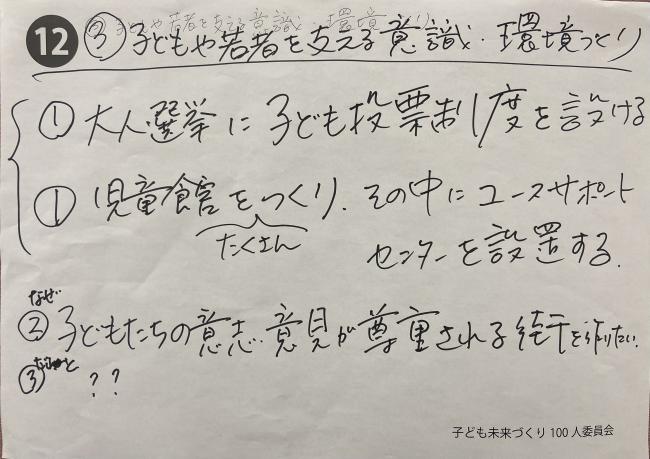 12 ③ 子どもや若者を支える意識・環境づくり
① 大人選挙に子ども投票制度を設ける
① 児童館をつくり、その中にユースサポート
たくさん
センターを設置する。
なぜ
② 子どもたちの意志・意見が尊重されるを作りたい。
③ ??
子ども未来づくり100人委員会